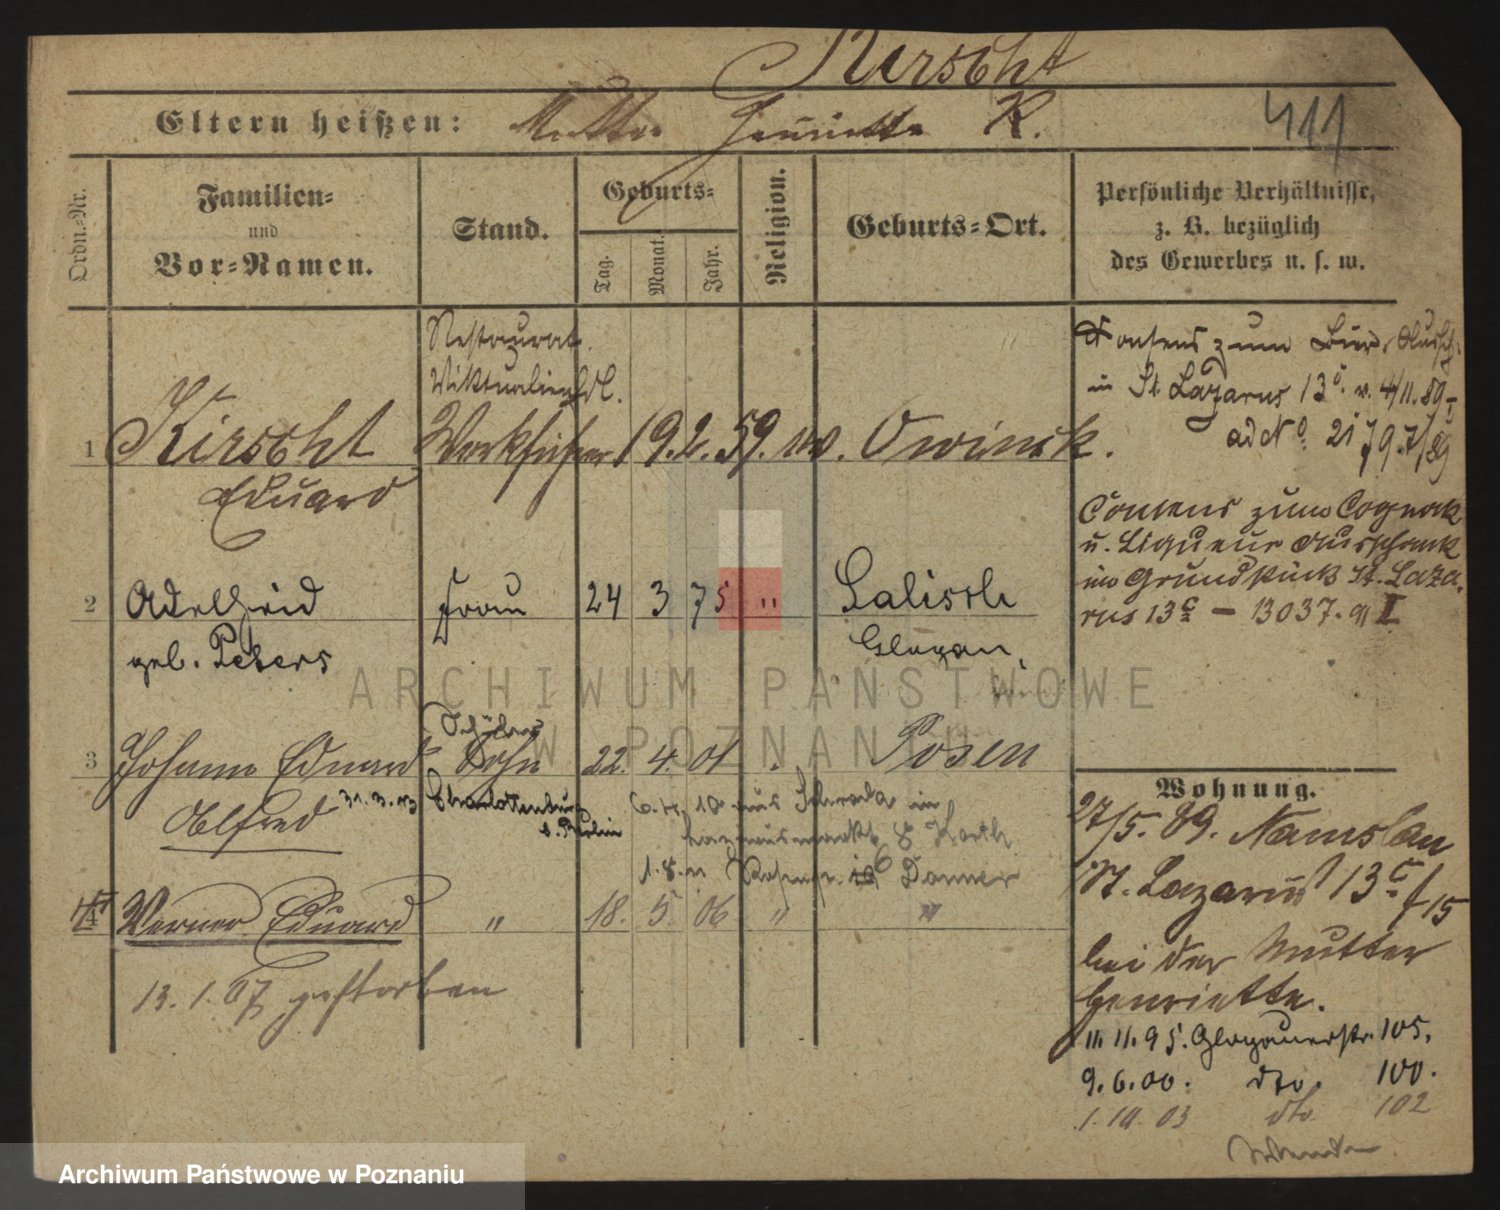 Kirscht
411
Eltern heißen: Mutter Henriette K.
Ordn.-Nr.
Familien-
und
Vor-Namen.
Stand.
Geburts-
Tag.
Monat.
Jahr.
Religion.
Geburts-Ort.
Persönliche Verhältnisse,
z. B. bezüglich
des Gewerbes u. s. w.
Restaurat.
Viktualienhdl.
1 Kirscht Werkführer 19. 2. 59. ev. Owinsk.
Eduard
2 Adelheid Frau 24 3 75 " Salisch
geb. Peters Glogau
Schüler
3 Johann Eduard Sohn 22. 4. 01 Posen
Alfred 31.3.13 Charlottenburg
b. Berlin
4 Werner Eduard " 18. 5. 06 " "
13. 1. 07 gestorben
Consens zum Bier Aussch.
in St. Lazarus 13c. v. 4/11. 89
ad No. 2179.7/89
Consens zum Cognak
u. Liqueur Ausschank
im Grundstück St. Laza-
rus 13c – 13037. 91 I
Wohnung.
27/5. 89. Namslau
St. Lazarus 13c f 15
bei der Mutter
Henriette.
11. 11. 95. Glogauerstr. 105.
9. 6. 00. dto. 100.
1. 10. 03 dto 102
ARCHIWUM PAŃSTWOWE
W POZNANIU
Archiwum Państwowe w Poznaniu